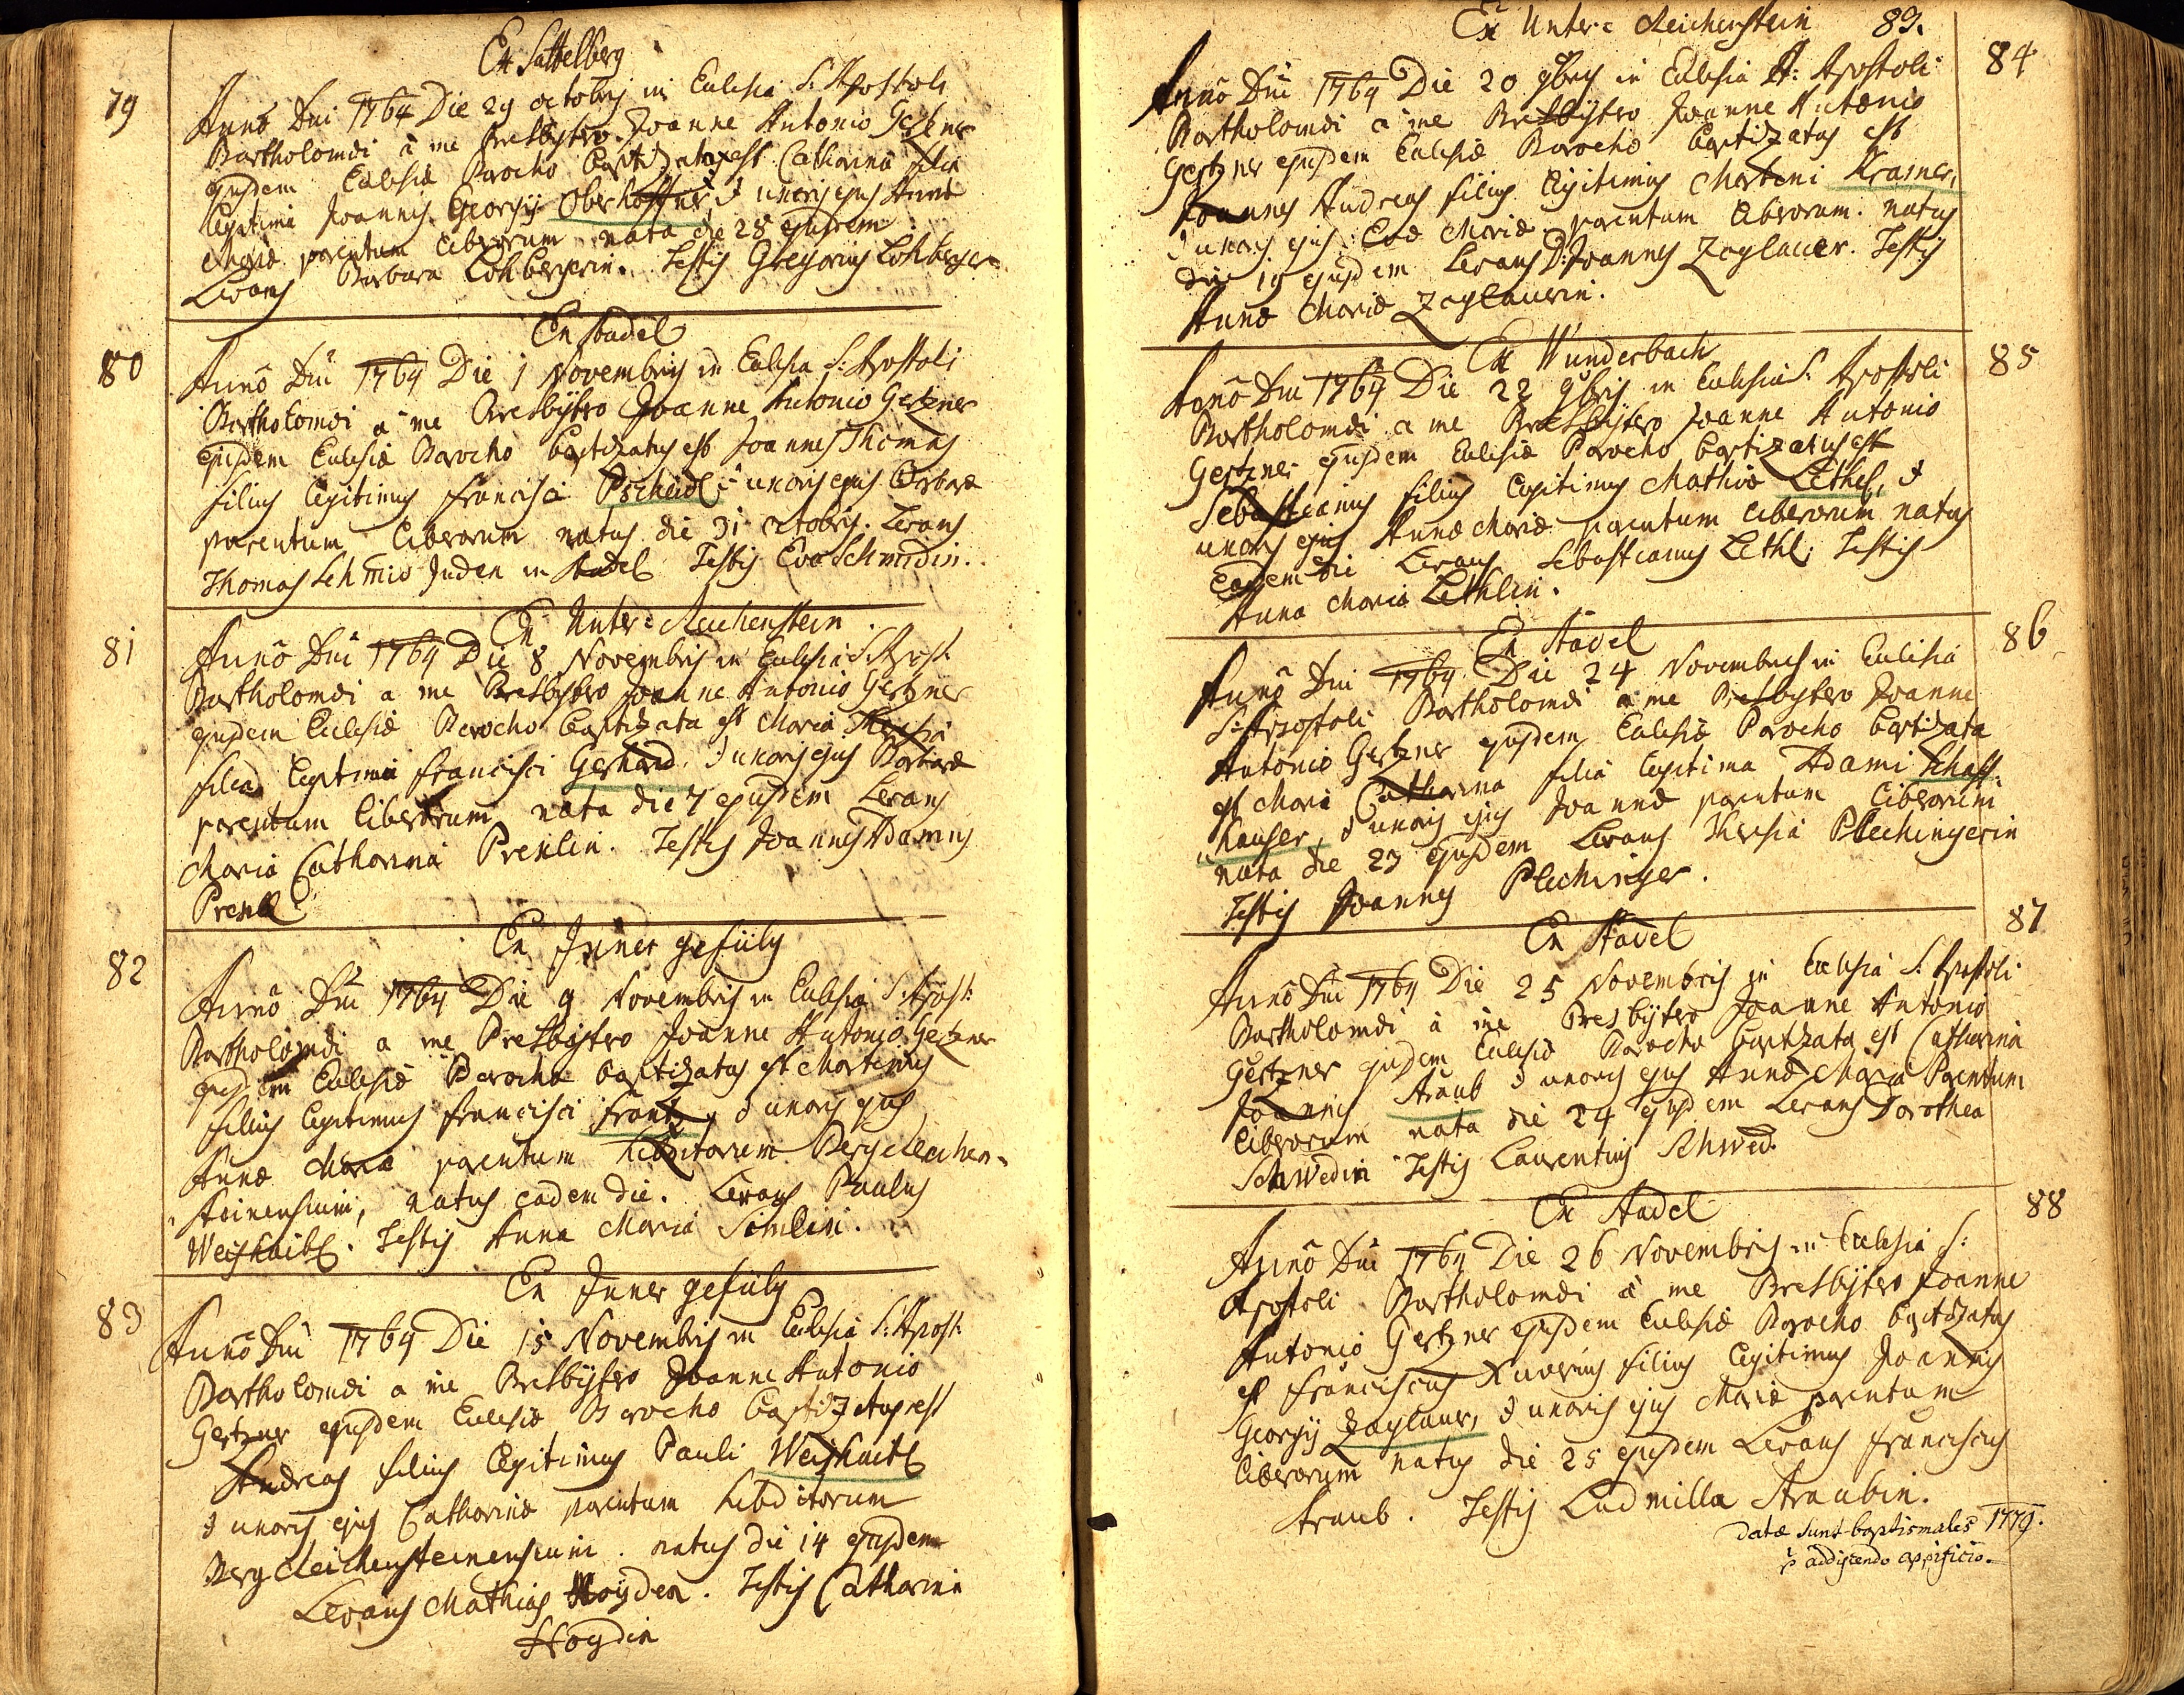 Ex Sattelberg
79
Anno Dni 1764 Die 29 octobris in Eclesia S: Apostoli
Bartholomæi à me Presbytro Joanne Antonio Gertzner
ejusdem Eclesiæ Parocho baptizata est Catharina filia
legitima Joannis Georgij Oberhoffner, & uxoris ejus Annæ
Mariæ parentum liberorum nata die 28 ejusdem
Levans Barbara Lohbergerin. Testis Gregorius Lohberger
Ex Stadel
80
Anno Dni 1764 Die 1 Novembris in Eclesia S: Apostoli
Bartholomæi a me Presbytro Joanne Antonio Gertzner
ejusdem Eclesiæ Parocho baptizatus est Joannes Thomas
filius legitimus Francisci Pscheidl, & uxoris ejus Barbaræ
parentum liberorum natus die 31 octobris. Levans
Thomas Schmid Juden in Stadel Testis Eva Schmidin.
Ex Unter=Reichenstein
81
Anno Dni 1764 Die 8 Novembris in Eclesia S: Apost:
Bartholomæi a me Presbytro Joanne Antonio Gertzner
ejusdem Eclesiæ Parocho baptizata est Maria Theresia
filia legitima Francisci Gerhard, & uxoris ejus Barbaræ
parentum liberorum nata die 7 ejusdem Levans
Maria Catharina Prexlin. Testis Joannes Adamus
Prexl
Ex Jnner gefülg
82
Anno Dni 1764 Die 9 Novembris in Eclesia S: Apost:
Bartholomæi a me Presbytro Joanne Antonio Gertzner
ejusdem Eclesiæ Parocho baptizatus est Martinus
filius legitimus Francisci Frantz, & uxoris ejus
Annæ Mariæ parentum subditorum Bergreichen=
steinensium, natus eadem die. Levans Paulus
Weishaitl. Testis Anna Maria Simlin.
Ex Jnner gefülg
83
Anno Dni 1764 Die 15 Novembris in Eclesia S: Apost:
Bartholomæi a me Presbytro Joanne Antonio
Gertzner ejusdem Eclesiæ Parocho baptizatus est
Andreas filius legitimus Pauli Weishaitl
& uxoris ejus Catharinæ parentum subditorum
Bergreichensteinensium. natus die 14 ejusdem
Levans Mathias Hoyden. Testis Catharina
Hoydin
Ex Unter=Reichenstein 83.
84
Anno Dni 1764 Die 20 9bris in Eclesia S: Apostoli
Bartholomæi a me Presbytro Joanne Antonio
Gertzner ejusdem Eclesiæ Parocho baptizatus est
Joannes Andreas filius legitimus Martini Krasner,
& uxoris ejus Evæ Mariæ parentum liberorum. natus
die 19 ejusdem Levans D: Joannes Zoglauer. Testis
Anna Maria Zoglauerin.
Ex Wunderbach
85
Anno Dni 1764 Die 22 9bris in Eclesia S: Apostoli
Bartholomæi a me Presbytro Joanne Antonio
Gertzner ejusdem Eclesiæ Parocho baptizatus est
Sebastianus filius legitimus Mathiæ Lethel, &
uxoris ejus Annæ Mariæ parentum liberorum natus
eadem die Levans Sebastianus Lethl. Testis
Anna Maria Lethlin.
Ex Stadel
86
Anno Dni 1764 Die 24 Novembris in Eclesia
S: Apostoli Bartholomæi a me Presbytero Joanne
Antonio Gertzner ejusdem Eclesiæ Parocho baptizata
est Maria Catharina filia legitima Adami Schaff=
hauser, & uxoris ejus Joannæ parentum liberorum
nata die 23 ejusdem Levans Theresia Plechingerin
Testis Joannes Plechinger.
Ex Stadel
87
Anno Dni 1764 Die 25 Novembris in Eclesia S: Apostoli
Bartholomæi à me Presbytro Joanne Antonio
Gertzner ejusdem Eclesiæ Parocho baptizata est Catharina
Joannis Straub & uxoris ejus Annæ Mariæ Parentum
liberorum nata die 24 ejusdem Levans Dorothea
Schwedin Testis Laurentius Schwed.
Ex Stadel
88
Anno Dni 1764 Die 26 Novembris in Eclesia S:
Apostoli Bartholomæi à me Presbytero Joanne
Antonio Gertzner ejusdem Eclesiæ Parocho baptizatus
est Franciscus Xaverius filius legitimus Joannis
Georgij Zoglauer, & uxoris ejus Mariæ parentum
liberorum natus die 25 ejusdem Levans Franciscus
Straub. Testis Ludmilla Straubin.
datæ sunt baptismales 1779.
p addiscendo opificio.